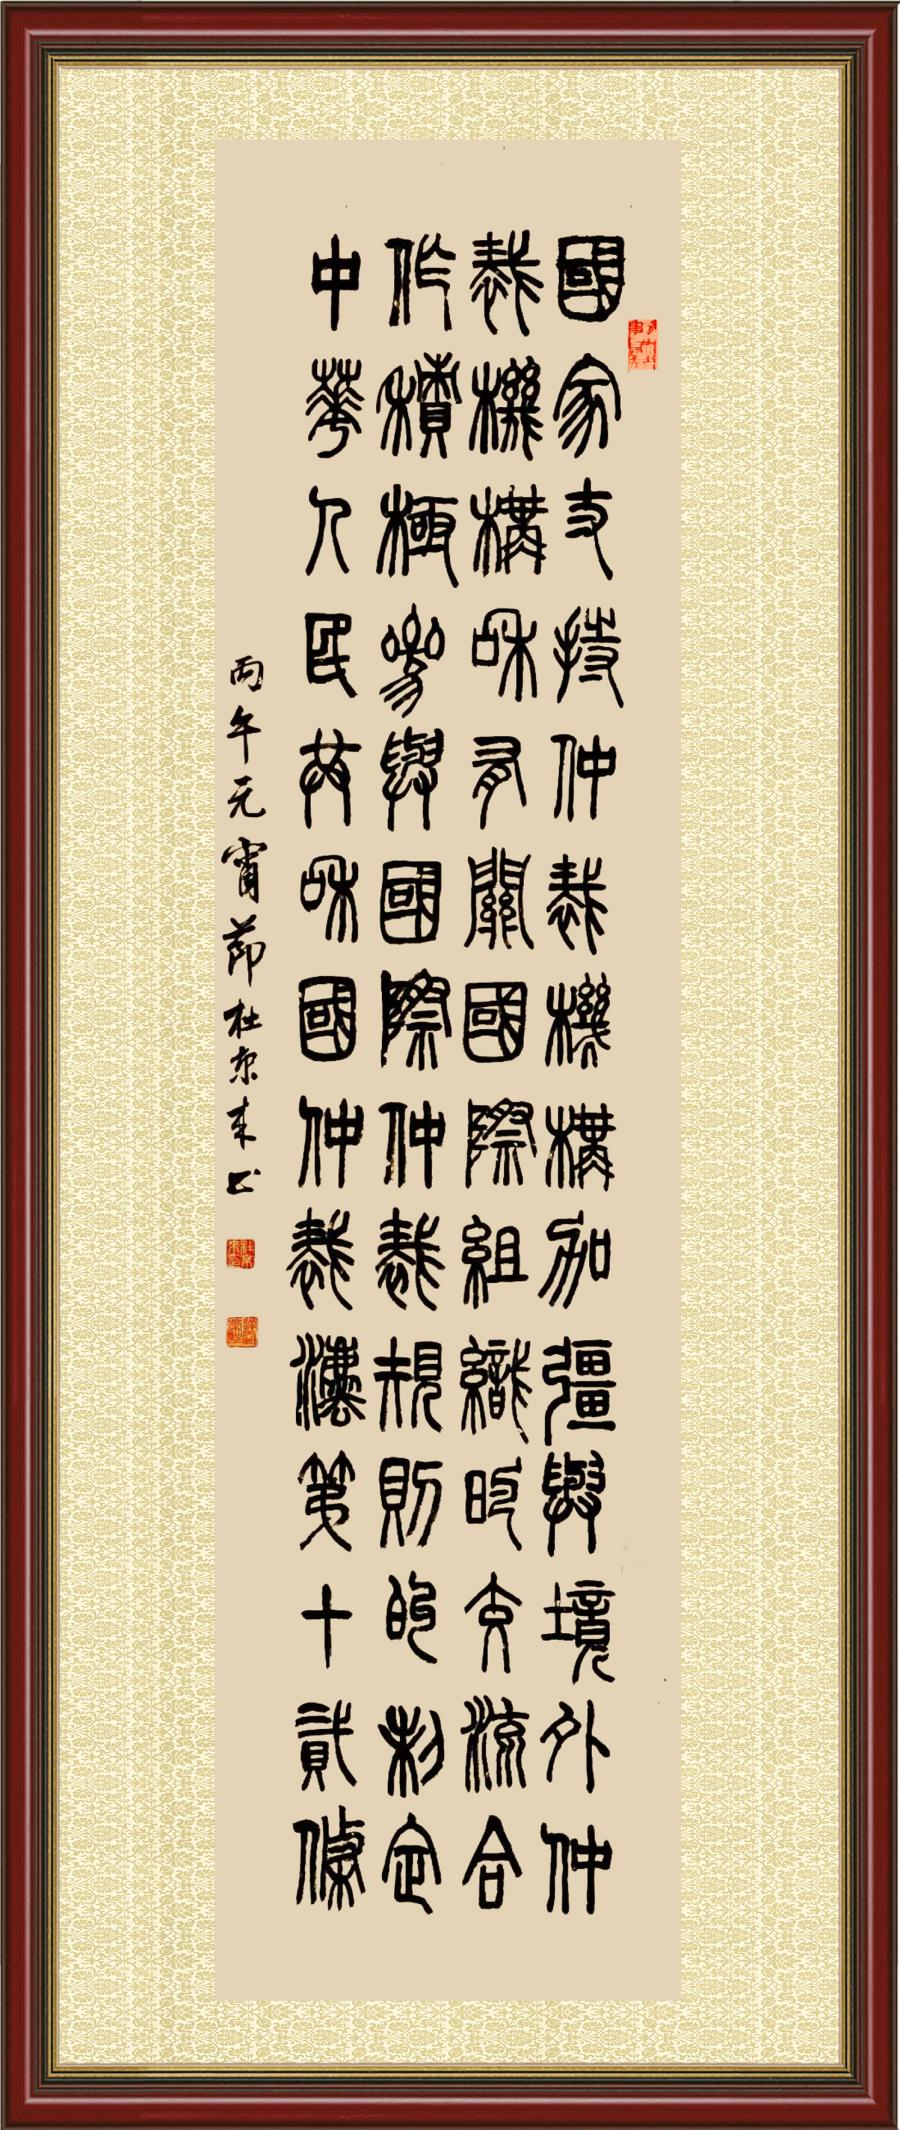 國家支持仲裁機構加彊與境外仲
裁機構和有關國際組織的交流合
作積極參與國際仲裁規則的制定
中華人民共和國仲裁灋第十貳條
丙午元宵節杜京来书